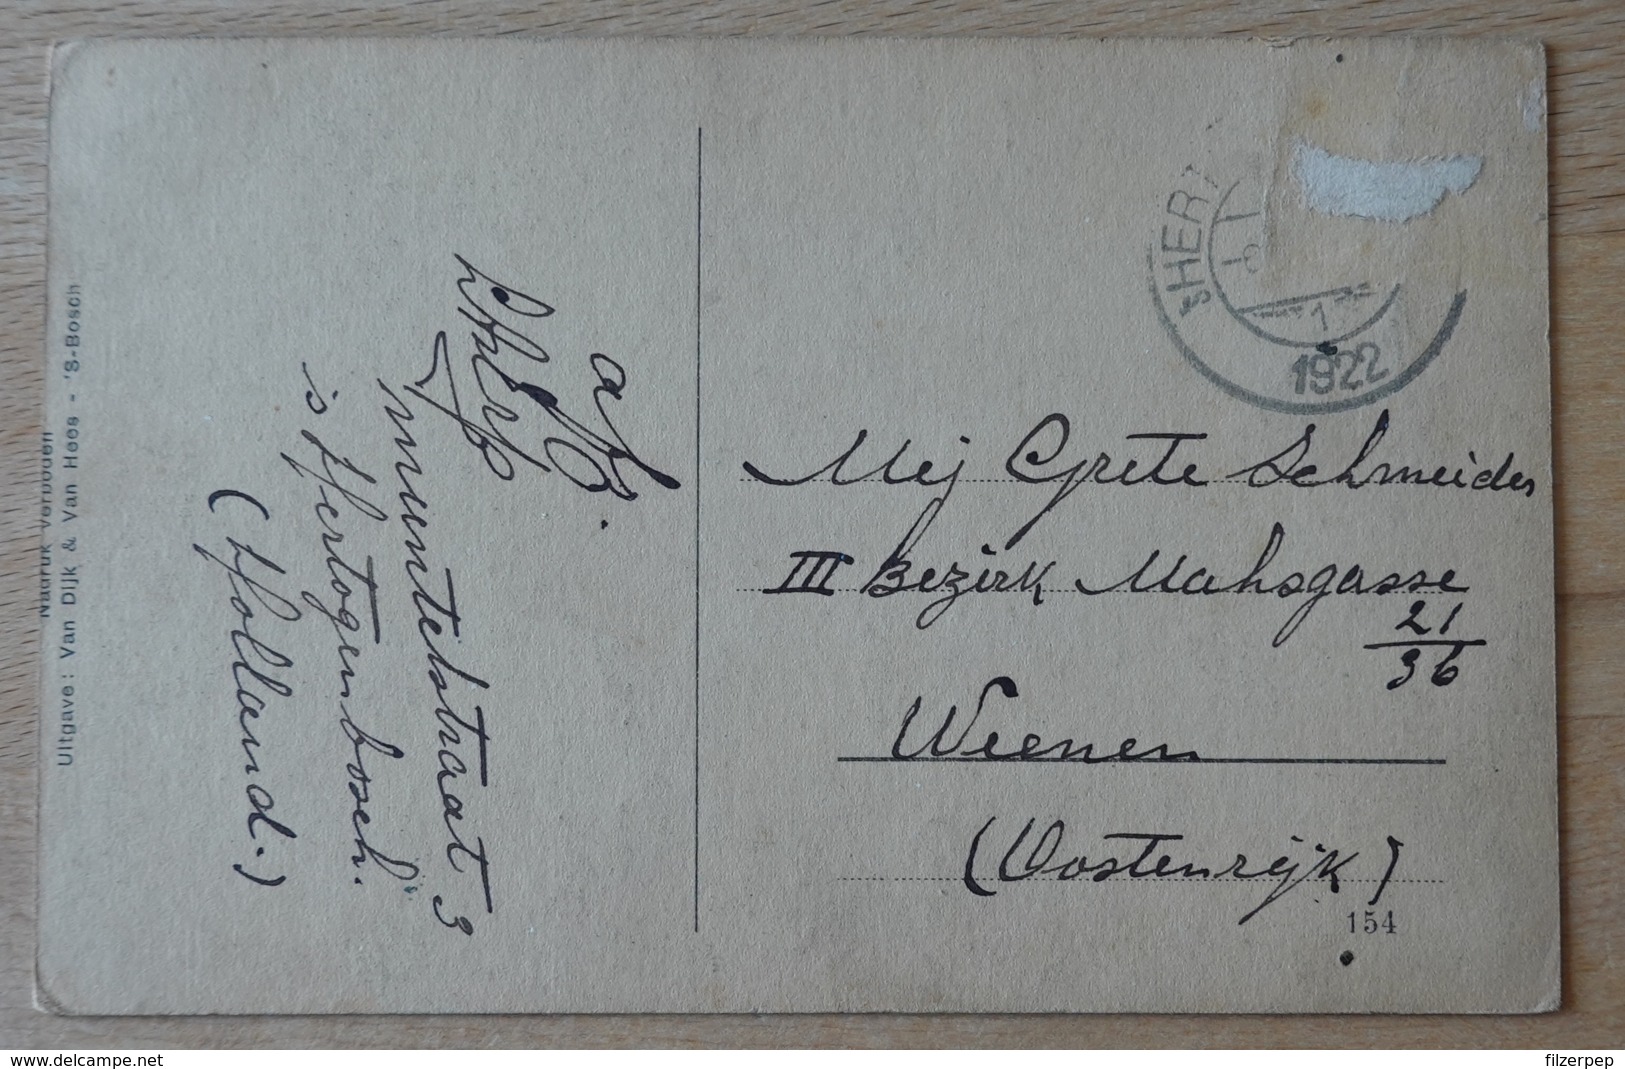 Nadruk verboden
Uitgave: Van Dijk & Van Hees - 'S-Bosch
afz.
muntelstraat 3
's Hertogenbosch.
(Holland.)
sHERT
1
1922
Mej Grete Schmeider
III Bezirk Mahsgasse
21
36
Weenen
(Oostenrijk)
154
www.delcampe.net
filzerpep